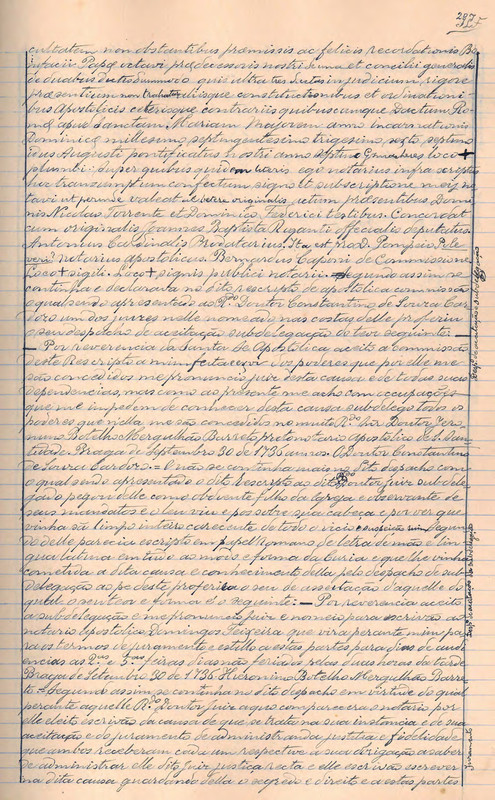 297
cultatem non obstantibus præmissis ac felicis recordationis Bo
nifacii Papæ octavi prædecessoris nostri
de duabus dictis Summodo quis ultra tres dictas in judicium, vigore
præsentium non trahatur aliisque constitutionibus et ordinationi
bus Apostolicis ceterisque contrariis quibuscumque Dactum Ro
mæ apud Sanctam Mariam Majorem anno incarnationis
Dominicæ millesimo septengentesimo trigesimo sexto septimo
idus Augusti pontificatus nostri anno septimo loco +
plumbi: Super quibus quidem ego notarius infra scriptus
hoc transumptum confectum signo et subscriptione
valeat originalis, utium præsentibus Domi
nis Nicolao Sorrente et Dominico Federici testibus. Concordat
cum originalis Joannes Baptista Riganti Officialis deputatus.
Antonius Cardinalis Prodatarius. Ita est
notarius Apostolicus. Bernardus Caponi de Commissione
Loco + sigili. Loco + signis publici notarii. Segundo assim se
continha e declarava no dito rescripto de apostolica commissão
o qual sendo apresentado ao Rdo Doutor Constantino de Souza Car
doro um dos juizes nelle nomeado nas costas delle proferiu
o seu despacho de aceitação e subdelegação do teor seguinte: —
— Por reverencia da Santa Sé Apostolica aceito a commissão
deste Rescripto a mim feita e dos poderes que por elle me
são concedidos me pronuncio juiz desta causa e de todas suas
dependencias, mas como ao presente me acho com occupações
que me impedem de conhecer desta causa subdelego todos os
poderes que nella me são concedidos no muito Rdo Snr Doutor Jero
nimo Botelho Mergulhão Barreto protonotario Apostolico de S. San
tidade. Braga de Septembro 30 de 1736 annos. O Doutor Constantino
de Souza Cardoro = E não se continha mais no dto despacho com
o qual sendo apresentado o dito Rescripto ao dito Doutor juiz subdele
gado pegou delle como obediente filho da Igreja e observante de
seus mandatos e o leu viu e pos sobre sua cabeça e por ver que
vinha são limpo inteiro carecente de todo o vicio e suspeição
do delle parecia escripto em papel Romano de letra de mão e lin
gua latina em tudo ao modo e forma da Curia e que lhe vinha
cometida a dita causa e conhecimento della pelo despacho de sub
delegação ao pé deste proferiu o seu de aceitação d'aquelle do
qual o seu teor e forma é o seguinte: — Por reverencia aceito
a subdelegação e me pronuncio juiz e nomeio para escrivão ao
notario Apostolico Domingos Teixeira que virá perante mim pa
ra os termos de juramento e estillo a estas partes para dias de audi
encias as 2as e 5as feiras dias não feriados pelas duas horas da tarde
Braga de Setembro 30 de 1736 Hieronimo Botelho Mergulhão Barre
to = Segundo assim se continha no dito despacho em virtude do qual
perante aquelle Rdo Doutor juiz aqui compareceu o notario por
elle eleito escrivão da causa de que se trata na sua instancia e de sua
aceitação e do juramento de administrar da justiça e fidelidade
que ambos receberam cada um respective a sua obrigação a saber
de administrar elle dito juiz justiça recta e elle escrivão escrever
na dita causa guardando della o segredo e direito e a estas partes
Juramento